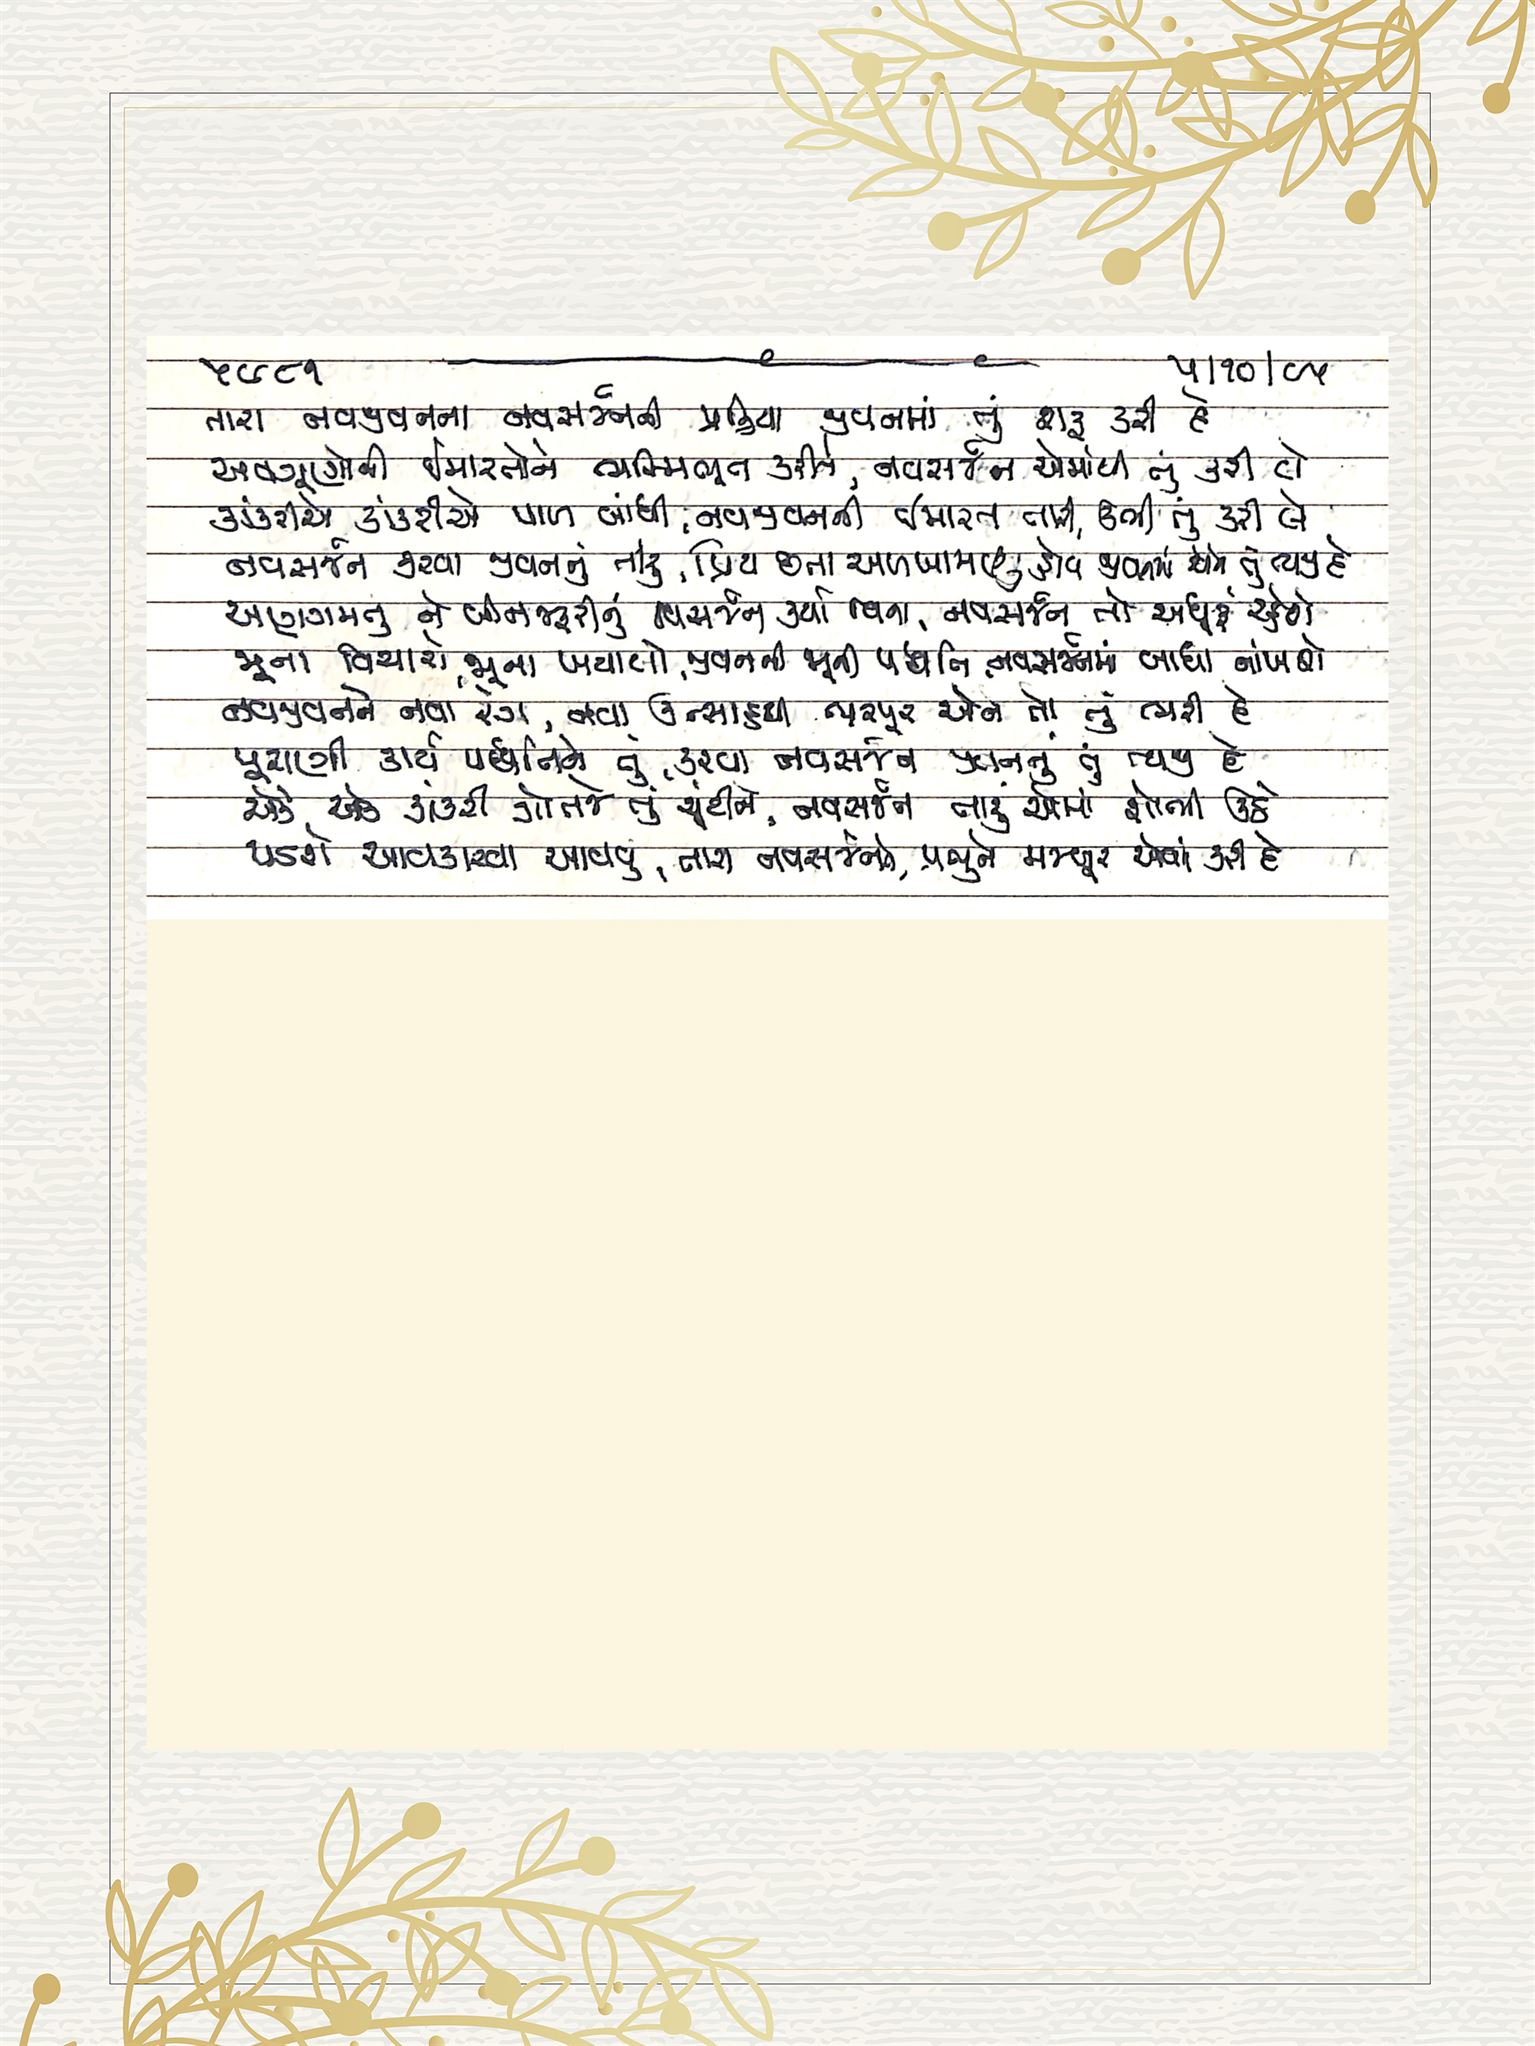 ૫૯૮૧ ૫/૧૦/૮૫
તારા નવજીવનના નવસર્જનની પ્રક્રિયા જીવનમાં તું શરૂ કરી દે
અવગૂણોની ઈમારતોને ભસ્મિભૂત કરીને, નવસર્જન એમાંથી તું કરી લે
કાંકરીએ કાંકરીએ પાળ બાંધી, નવજીવનની ઈમારત તારી, ઉભી તું કરી લે
નવસર્જન કરવા જીવનનું તારું, પ્રિય છતા અળખામણું હોય જીવનમાં તું ત્યજી દે
અણગમતું ને બીનજરૂરીનું વિસર્જન કર્યા વિના, નવસર્જન તો અધૂરું રહેશે
જૂના વિચારો, જૂના ખ્યાલો, જીવનની જૂની પધ્ધતિ, નવસર્જનમાં બાધા નાંખશે
નવજીવનને નવા રંગ, નવા ઉત્સાહથી ભરપૂર એને તો તું ભરી દે
પૂરાણી કાર્ય પધ્ધતિને તું, કરવા નવસર્જન જીવનનું તું ત્યજી દે
એક એક કાંકરી ગોતજે તું ચૂંટીને, નવસર્જન તારું એમાં શોભી ઉઠે
પડશે આવકારવા આવવું, તારા નવસર્જનને, પ્રભુને મજબૂર એવાં કરી દે